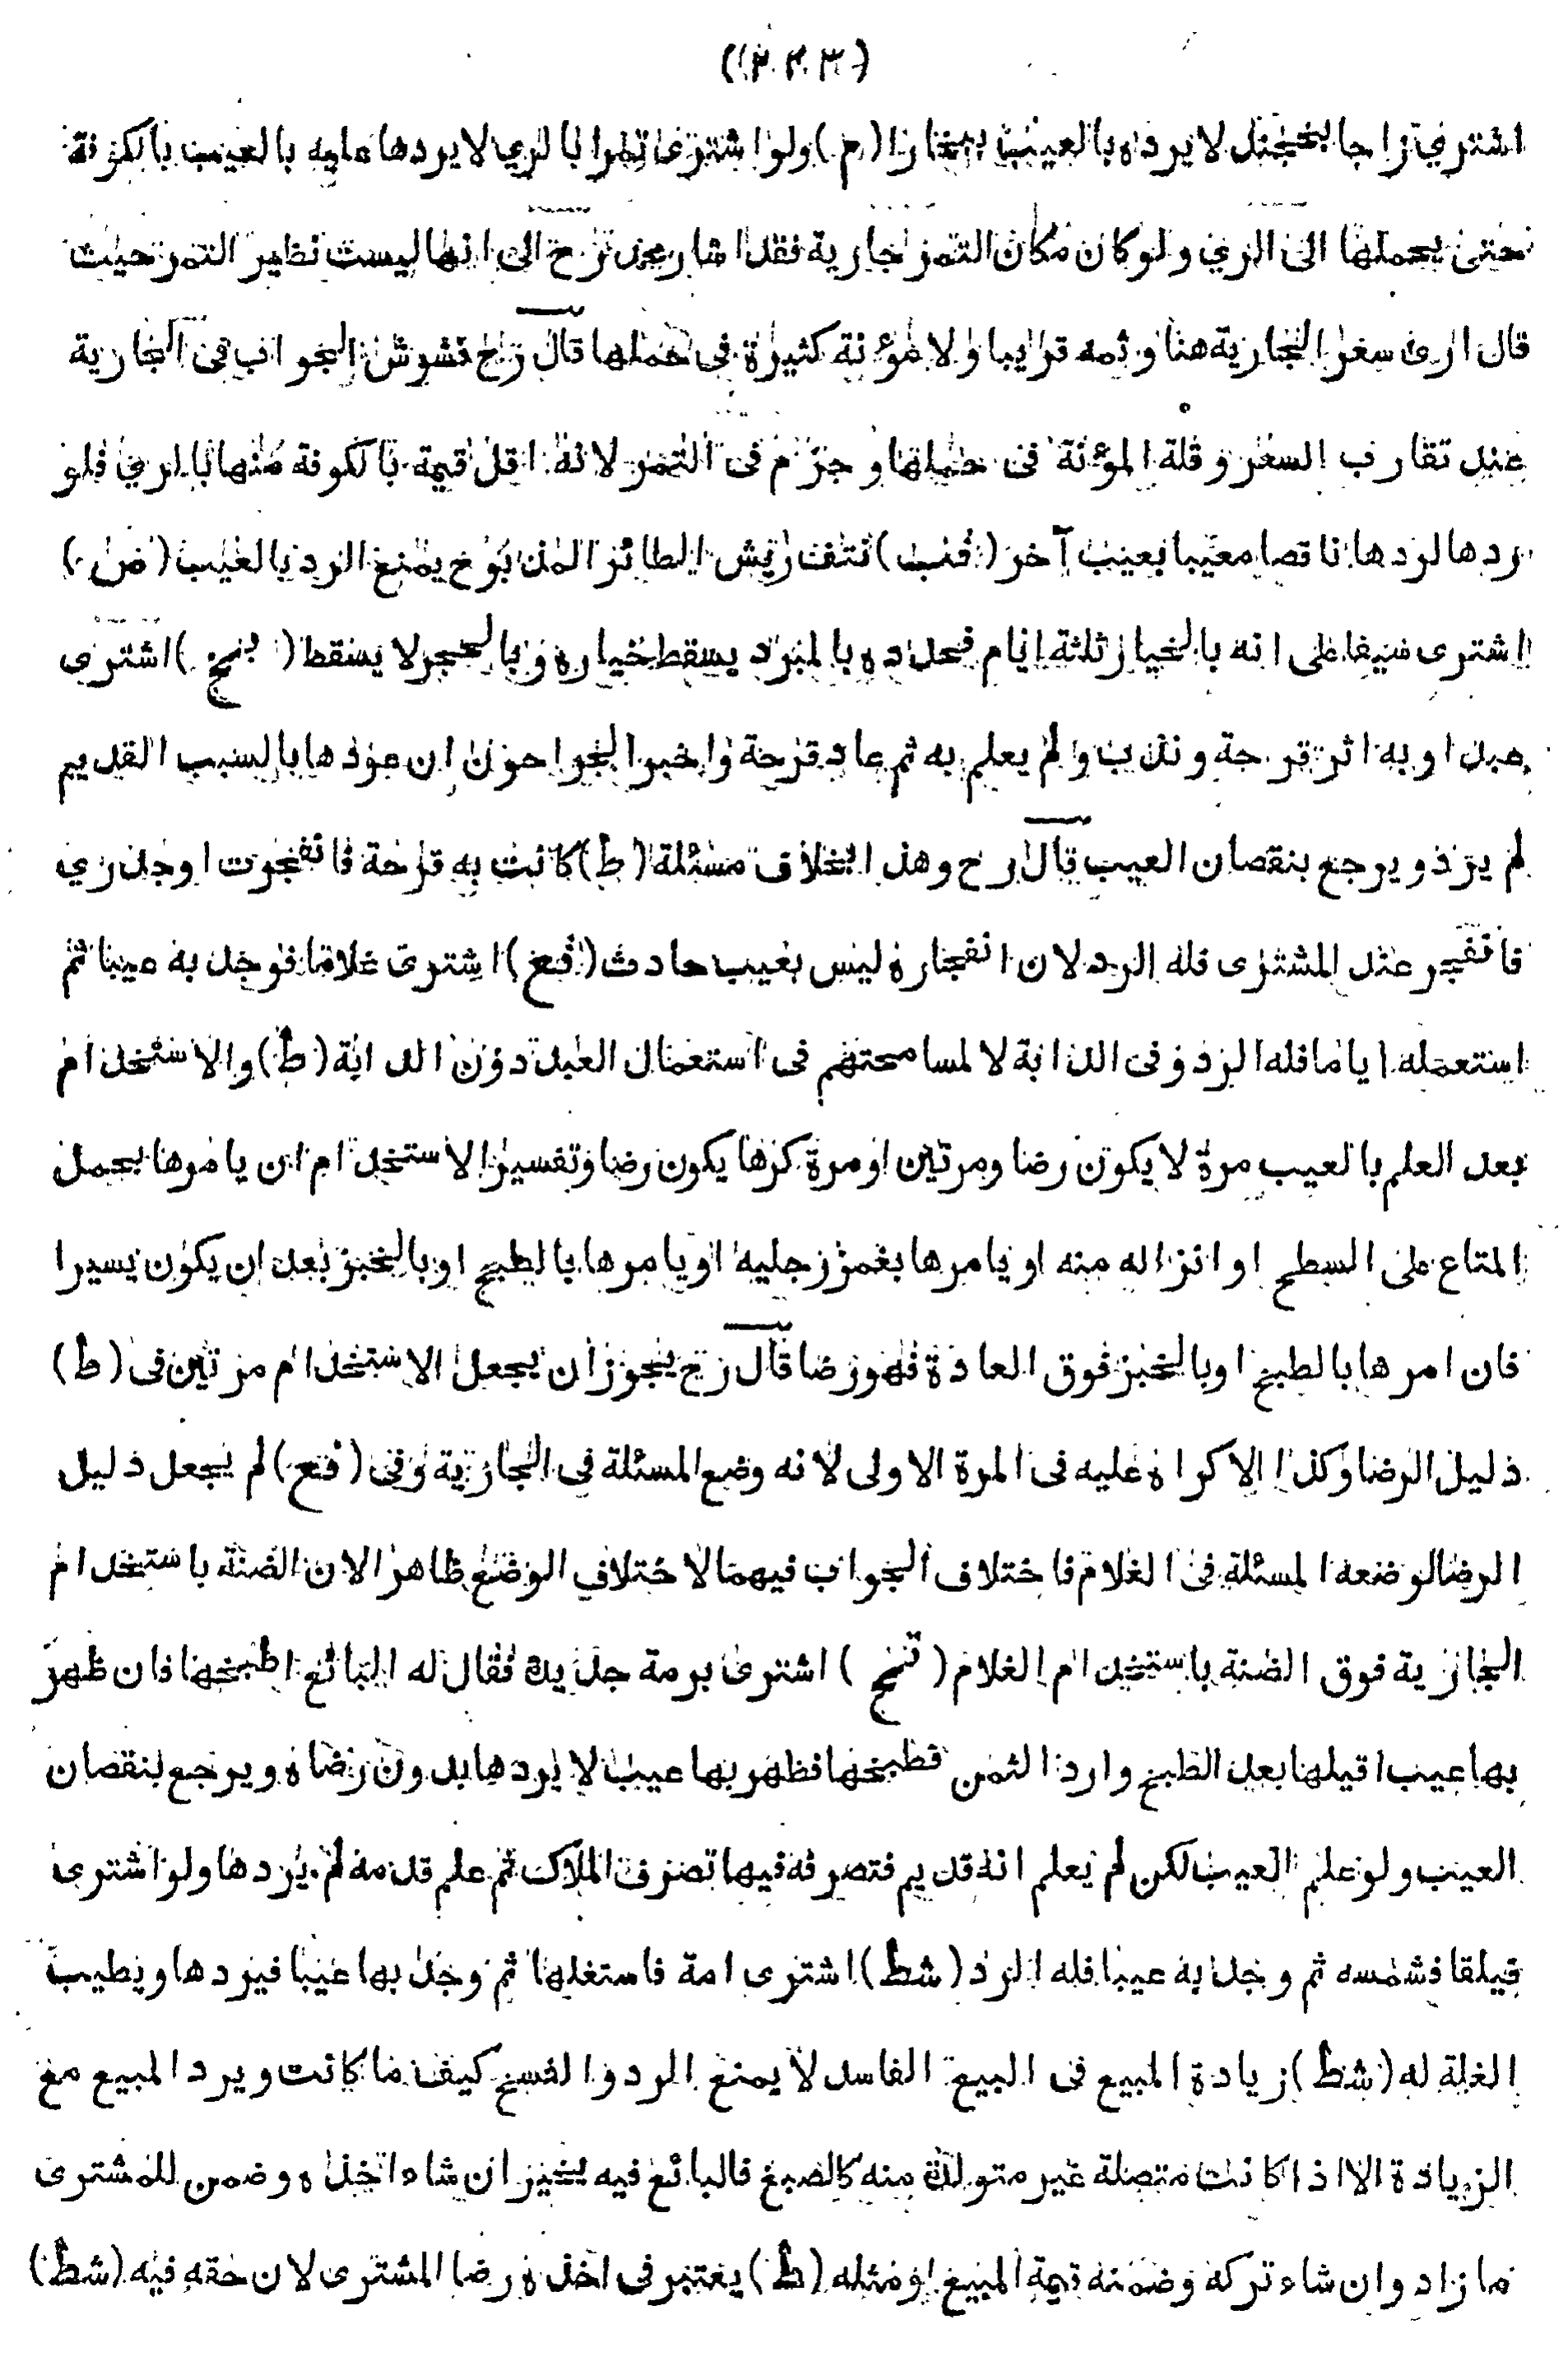 (٢٢٣)
اشترى زاجا بخجند لا يرده بالعيب ببخارا (م) ولو اشترى تمرا بالري لا يردها عليه بالعيب بالكوفة
حتى يحملها الى الري ولو كان مكان التمر جارية فقد اشار محمد رح الى انها ليست نظير التمر حيث
قال ارى سعر الجارية هنا وثمه قريبا ولا مؤنة كثيرة فى حملها قال رح فشوش الجواب فى الجارية
عند تقارب السعر وقلة المؤنة فى حملها وجزم فى التمر لانه اقل قيمة بالكوفة منها بالري فلو
ردها لردها ناقصا معيبا بعيب آخر (قنب) نتف ريش الطائر المذبوح يمنع الرد بالعيب (ض)
اشترى سيفا على انه بالخيار ثلثة ايام فحدده بالمبرد يسقط خياره وبالحجر لا يسقط (بخ) اشترى
عبدا وبه اثر قرحة وندب ولم يعلم به ثم عاد قرحة واخبر الجراحون ان عودها بالسبب القديم
لم يرد ويرجع بنقصان العيب قال رح وهذا بخلاف مسئلة (ط) كانت به قرحة فانفجرت او جدري
فانفجر عند المشترى فله الرد لان انفجاره ليس بعيب حادث (قع) اشترى غلاما فوجد به عيبا ثم
استعمله اياما فله الرد وفى الدابة لا لمسامحتهم فى استعمال العبد دون الدابة (ط) والاستخدام
بعد العلم بالعيب مرة لا يكون رضا ومرتين او مرة كرها يكون رضا وتفسير الاستخدام ان يامرها بحمل
المتاع على السطح او انزاله منه او يامرها بغمز رجليه او يامرها بالطبخ او بالخبز بعد ان يكون يسيرا
فان امرها بالطبخ او بالخبز فوق العادة فهو رضا قال رح يجوز ان يجعل الاستخدام مرتين فى (ط)
دليل الرضا وكذا الاكراه عليه فى المرة الاولى لانه وضع المسئلة فى الجارية وفى (قع) لم يجعل دليل
الرضا لوضعه المسئلة فى الغلام فاختلاف الجواب فيهما لاختلاف الوضع ظاهرا لان الضنة باستخدام
الجارية فوق الضنة باستخدام الغلام ( ) اشترى برمة جديدة فقال له البائع اطبخها فان ظهر
بها عيب اقيلها بعد الطبخ وارد الثمن فطبخها فظهر بها عيب لا يردها بدون رضاه ويرجع بنقصان
العيب ولو علم العيب لكن لم يعلم انه قديم فتصرفه فيها تصرف الملاك ثم علم قدمه لم يردها ولو اشترى
فيلقا فشمسه ثم وجد به عيبا فله الرد (شط) اشترى امة فاستغلها ثم وجد بها عيبا فيردها ويطيب
الغلة له (شط) زيادة المبيع فى البيع الفاسد لا يمنع الرد والفسخ كيف ما كانت ويرد المبيع مع
الزيادة الا اذا كانت متصلة غير متولدة منه كالصبغ فالبائع فيه يخير ان شاء اخذه وضمن للمشترى
ما زاد وان شاء تركه وضمنه قيمة المبيع او مثله (ط) يعتبر فى اخذه رضا المشترى لان حقه فيه (شط)